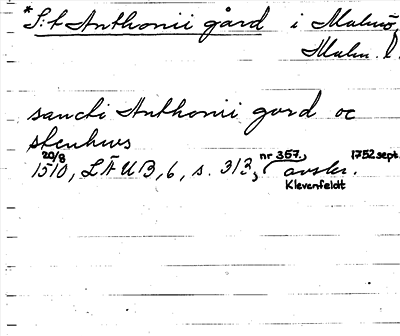 *S:t Anthonii gård i Malmö,
Malm. l.
sancti Anthonii gord oc
stenhws
20/8 nr 357, 1752 sept.
1510, LÄUB, 6, s. 313, avskr.
Klevenfeldt